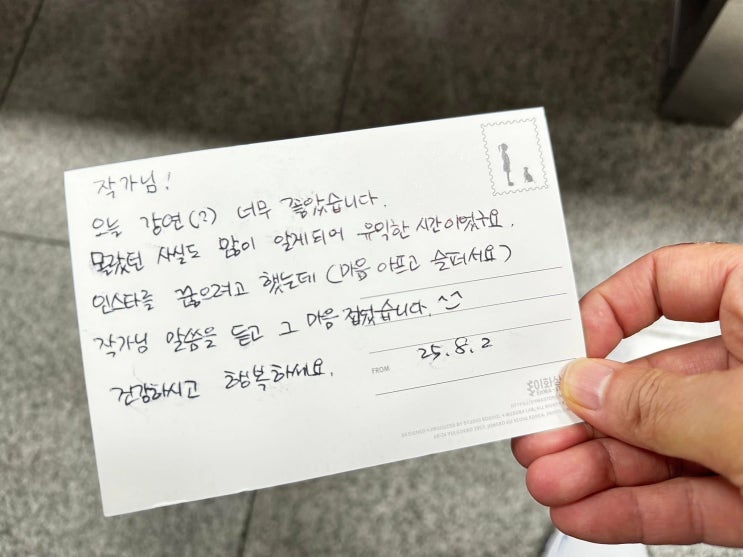 작가님!
오늘 강연(?) 너무 좋았습니다.
몰랐던 사실도 많이 알게되어 유익한 시간이었구요.
인스타를 끊으려고 했는데 (마음 아프고 슬퍼서요)
작가님 말씀을 듣고 그 마음 접었습니다. ^^
건강하시고 행복하세요.
25.8.2
FROM